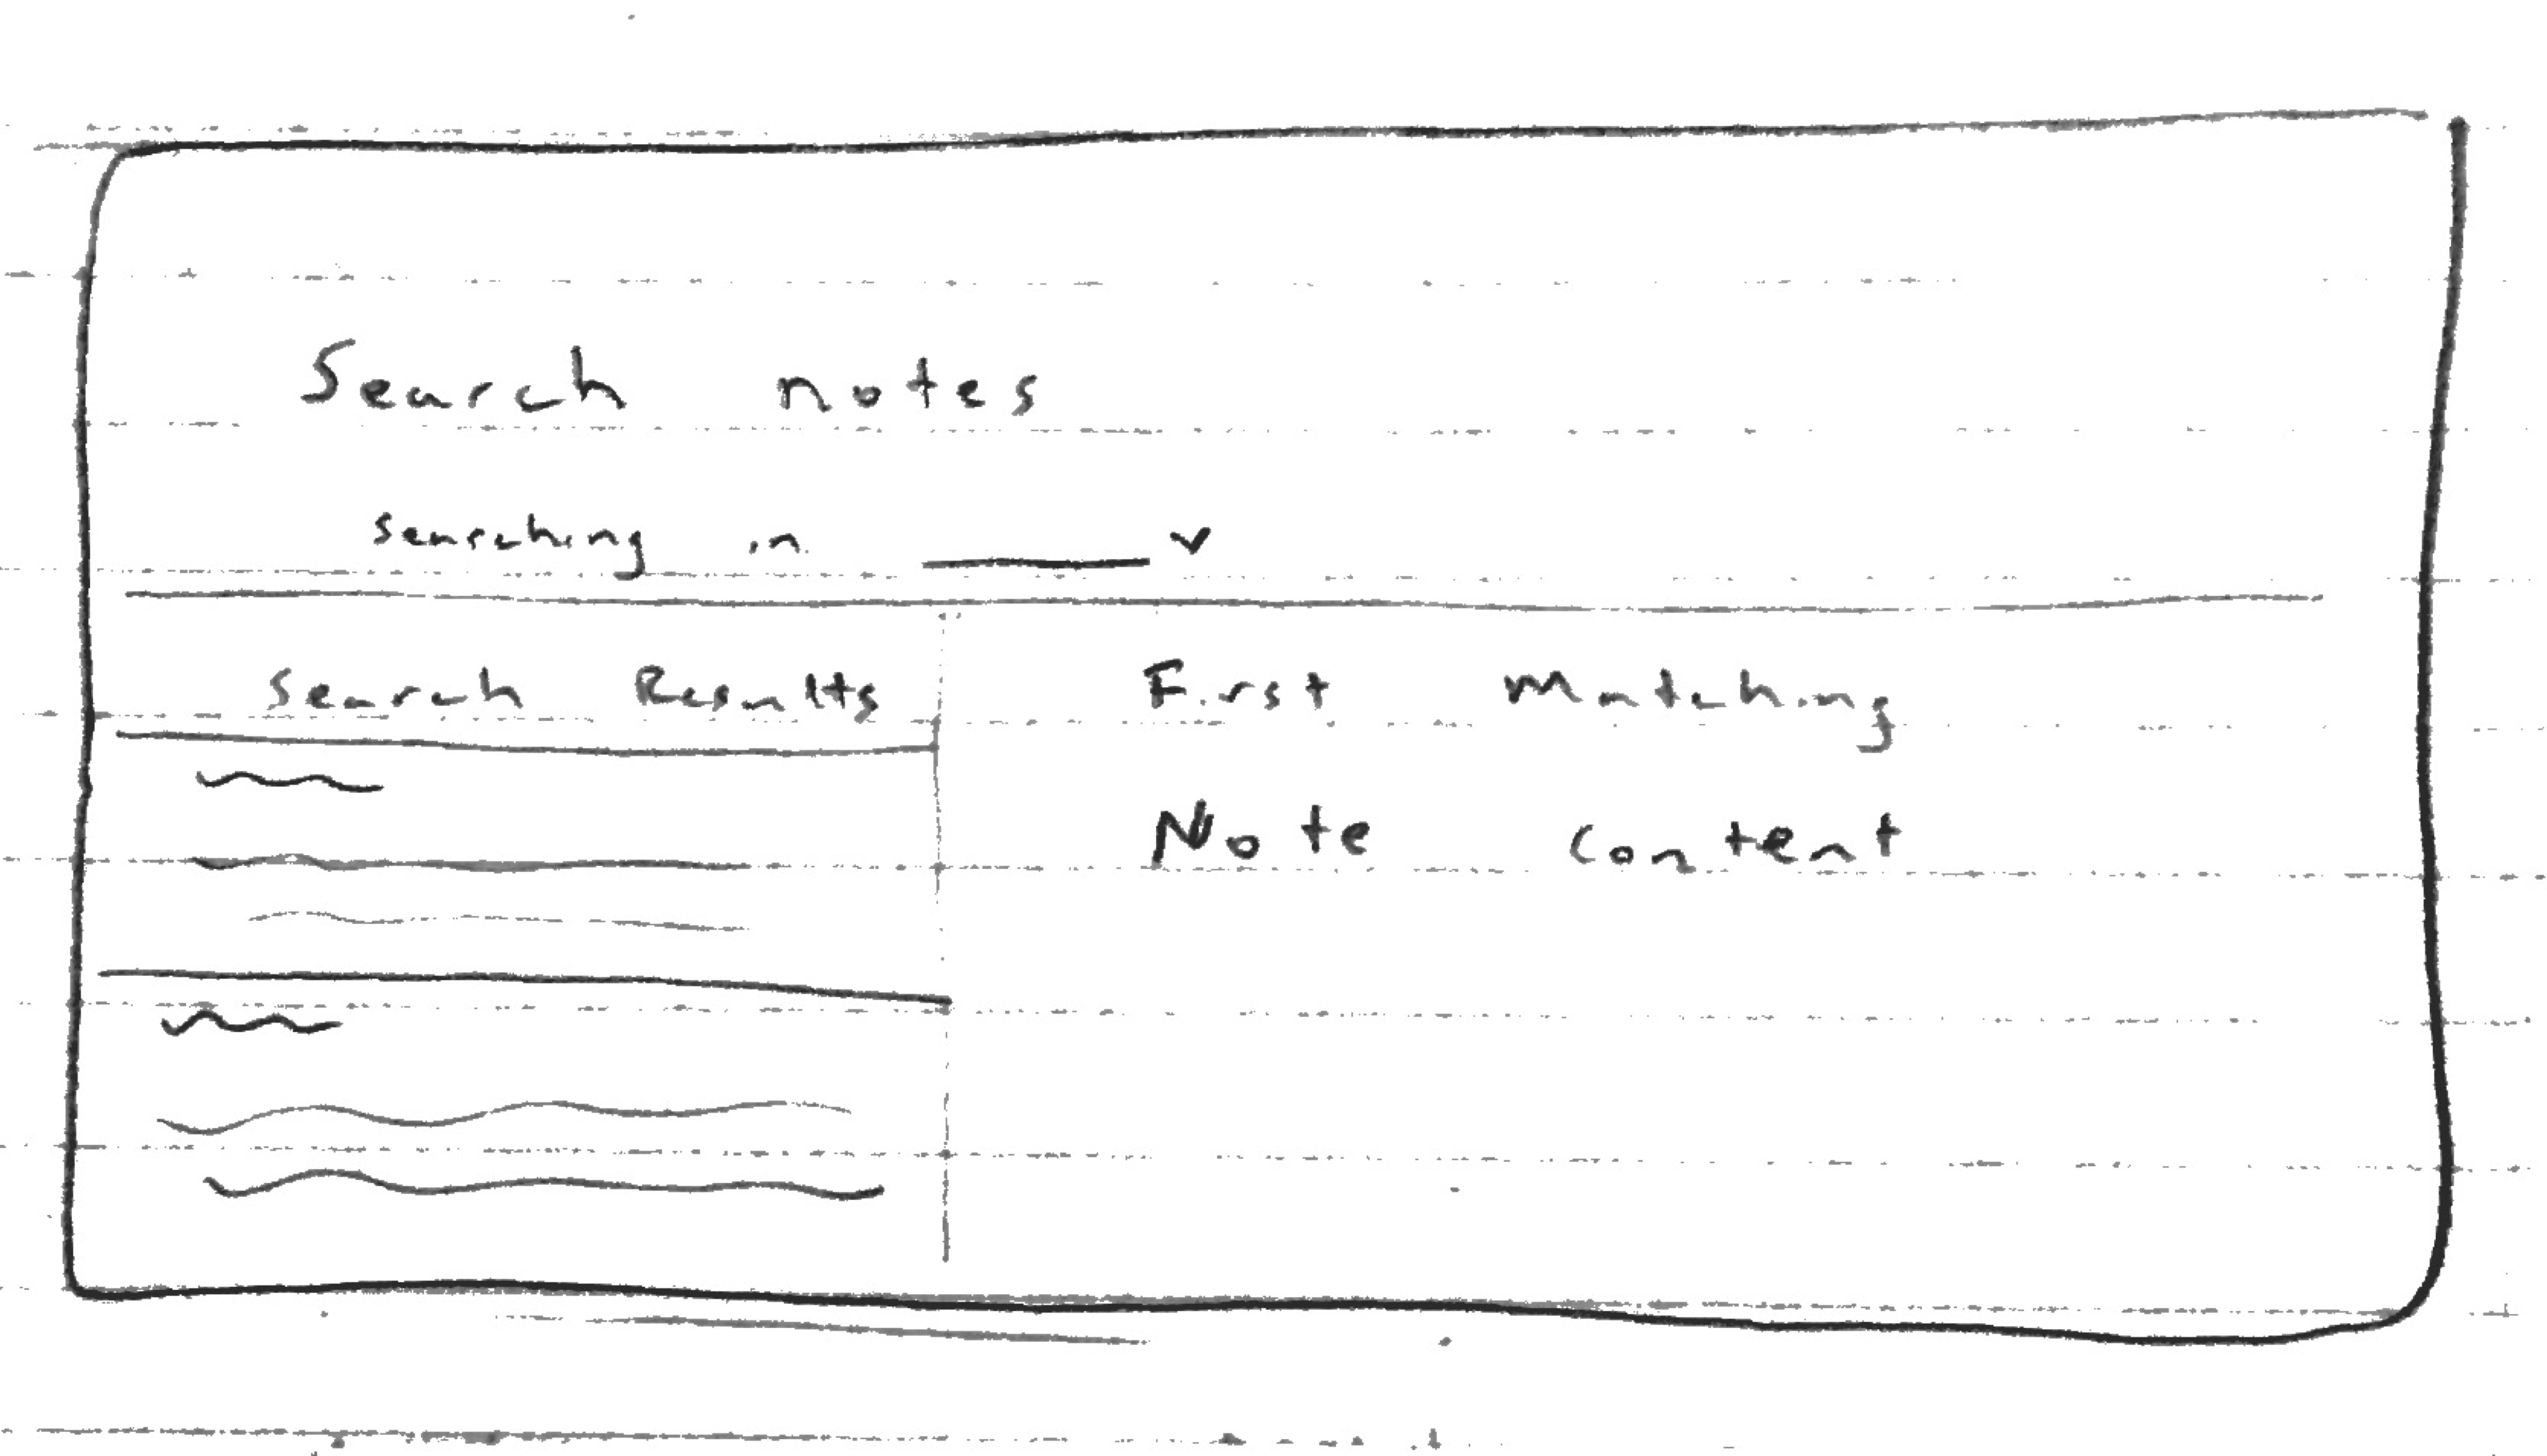 Search notes
searching in
Search Results
First Matching
Note Content